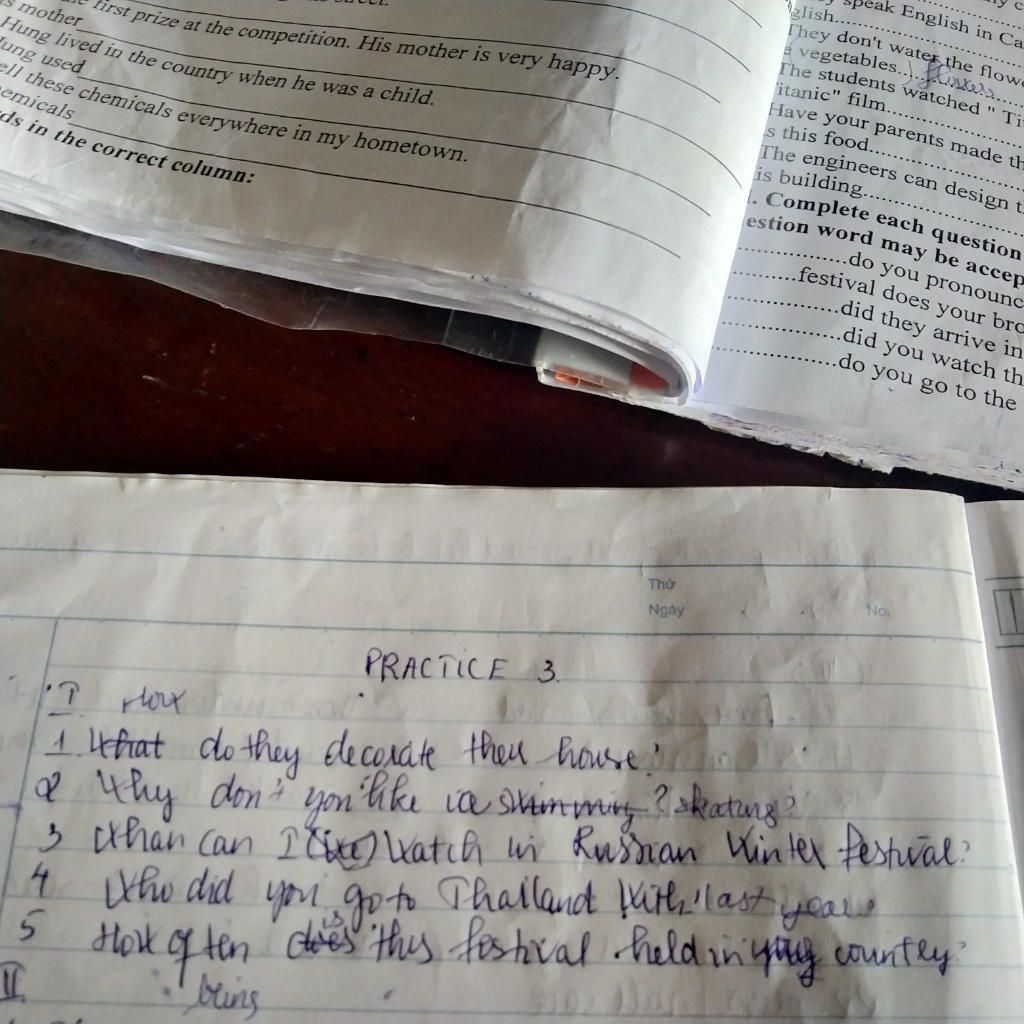 first prize at the competition. His mother is very happy.
s mother
Hung lived in the country when he was a child.
ung used
ell these chemicals everywhere in my hometown.
emicals
ds in the correct column:
y speak English in Ca
glish
They don't water the flow
e vegetables. flowers
The students watched " Ti
itanic" film
Have your parents made th
s this food
The engineers can design t
is building
. Complete each question
estion word may be accep
do you pronounc
festival does your bro
did they arrive in
did you watch th
do you go to the
Thứ
Ngày No.
PRACTICE 3.
I How
1. What do they decorate their house?
2 Why don't you like ice swimming? skating?
3 What can I (see) watch in Russian Winter festival?
4 Who did you go to Thailand with last year
5 How often does is this festival held in your country?
II being